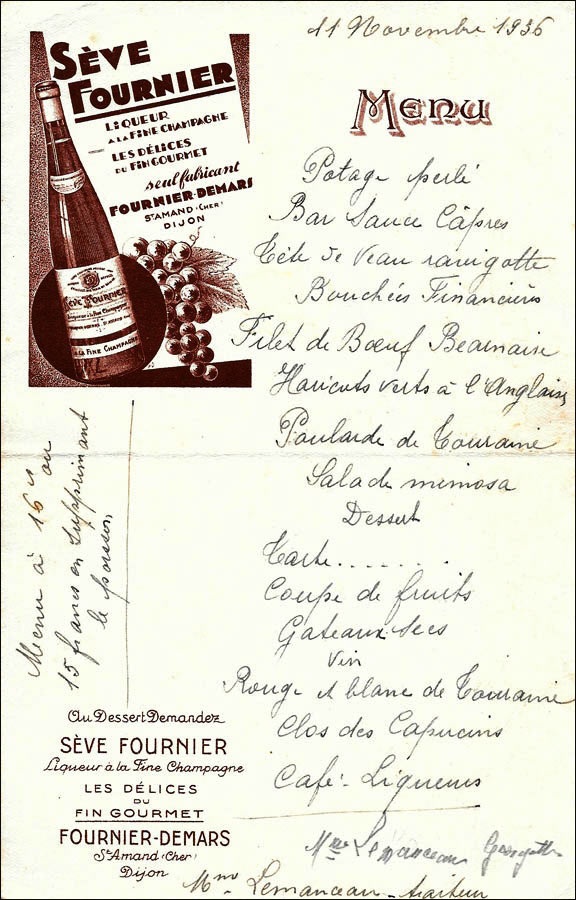 11 Novembre 1936
SÈVE
FOURNIER
LIQUEUR
A LA FINE CHAMPAGNE
LES DÉLICES
DU FIN GOURMET
seul fabricant
FOURNIER-DEMARS
ST AMAND (CHER)
DIJON
SÈVE FOURNIER
A LA FINE CHAMPAGNE
MENU
Potage perlé
Bar Sauce Câpres
Tête de Veau ravigotte
Bouchées Financières
Filet de Bœuf Bearnaise
Haricots verts à l'Anglaise
Poularde de Touraine
Salade mimosa
Dessert
Tarte........
Coupe de fruits
Gateaux secs
Vin
Rouge et blanc de Touraine
Clos des Capucins
Café - Liqueurs
Menu à 16 ou
15 francs en supprimant
le poisson
Au Dessert Demandez
SÈVE FOURNIER
Liqueur à la Fine Champagne
LES DÉLICES
DU
FIN GOURMET
FOURNIER-DEMARS
St Amand (Cher)
Dijon
Mme Lemanceau
Mme Lemanceau - traiteur